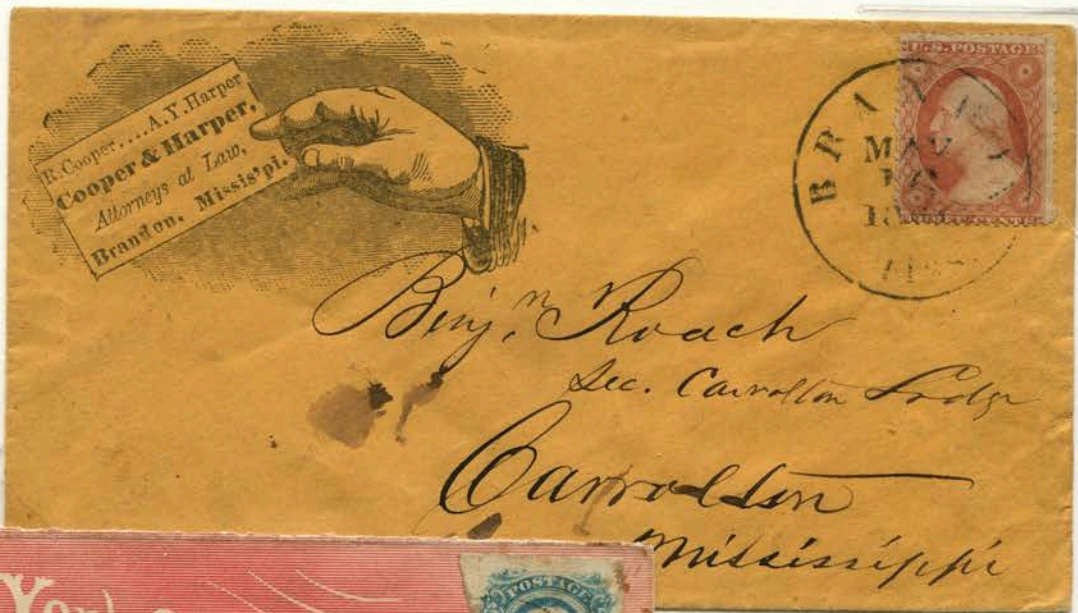 R. Cooper....A.Y. Harper
Cooper & Harper,
Attorneys at Law,
Brandon, Missis'pi.
U.S. POSTAGE
BRAN
MAY
Benj.n Roach
Sec. Carrolton Lodge
Carrollton
Mississippi
POSTAGE